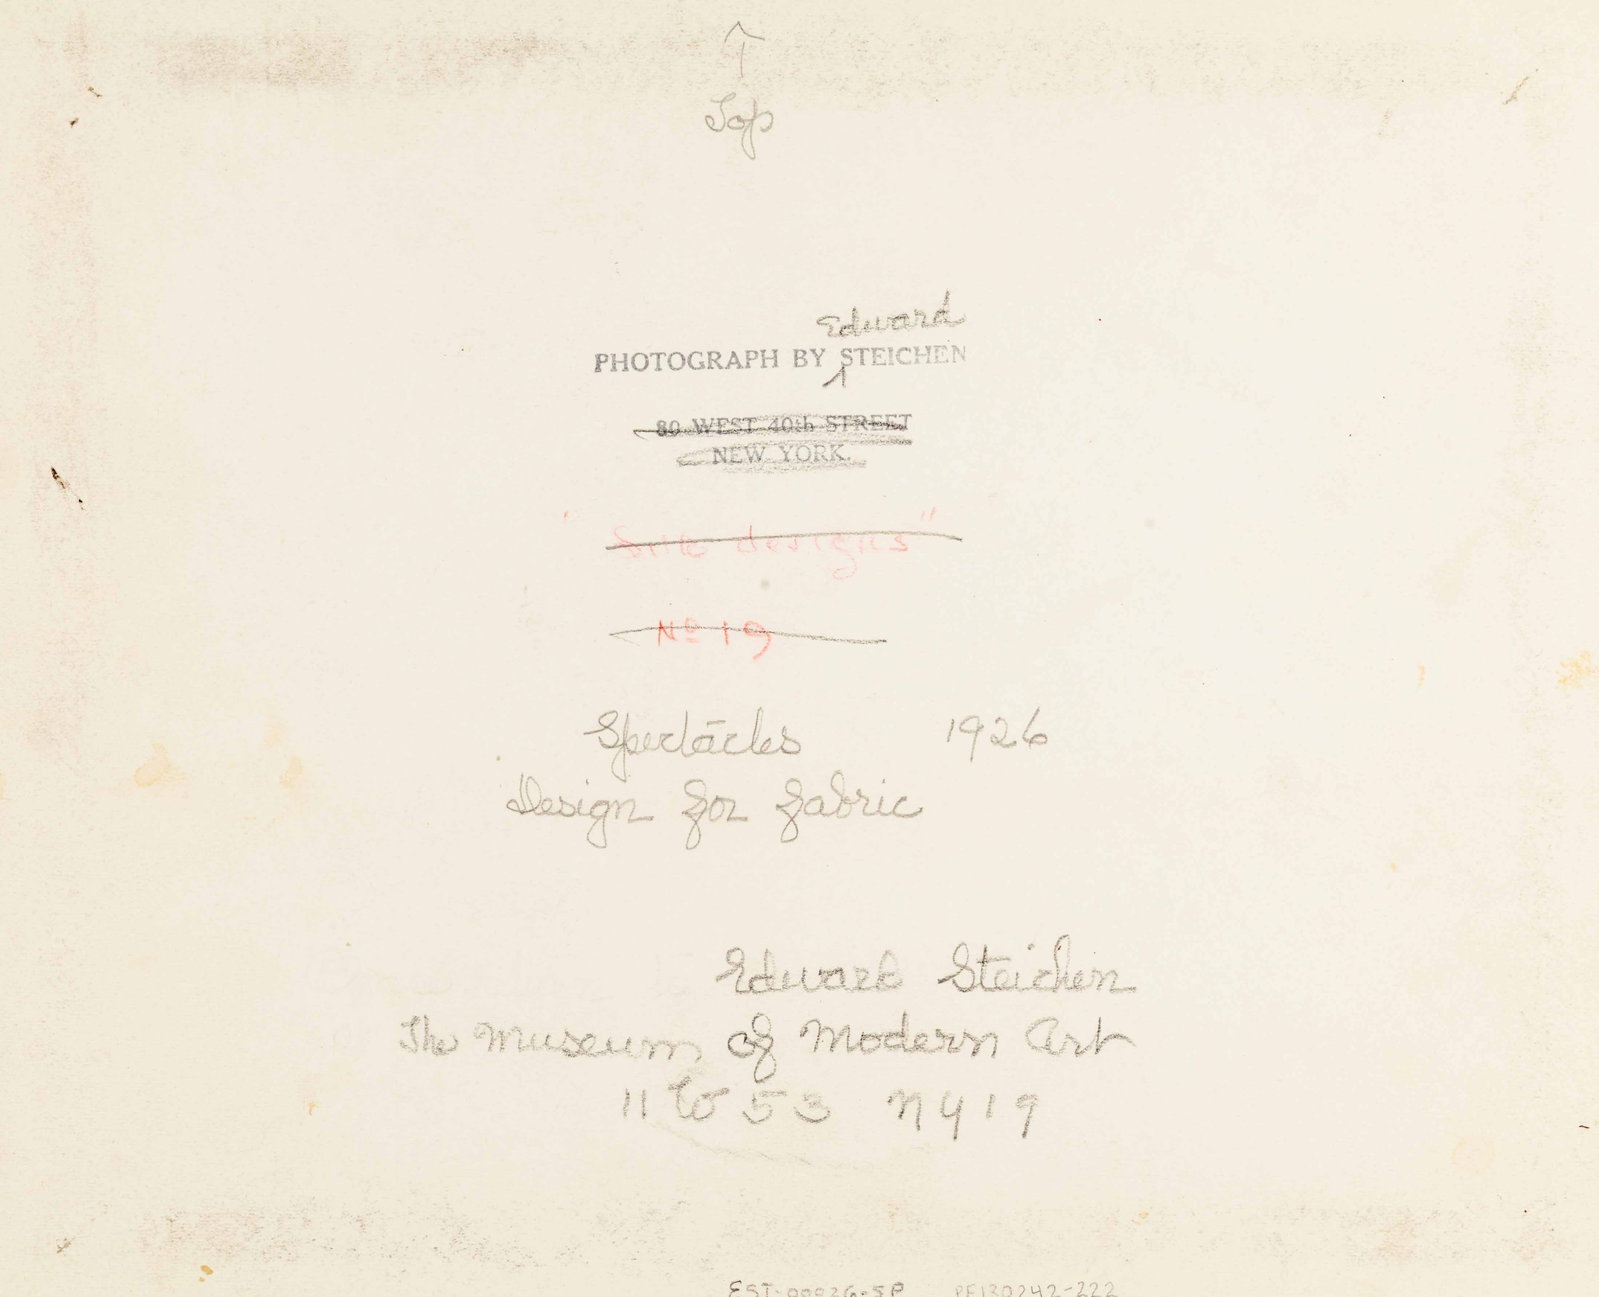 Top
Edward
PHOTOGRAPH BY STEICHEN
80 WEST 40th STREET
NEW YORK.
"Silk designs"
No 19
Spectacles 1926
Design for fabric
Edward Steichen
The Museum of Modern Art
11 W 53 NY 19
EST-00026-SP PF130242-222